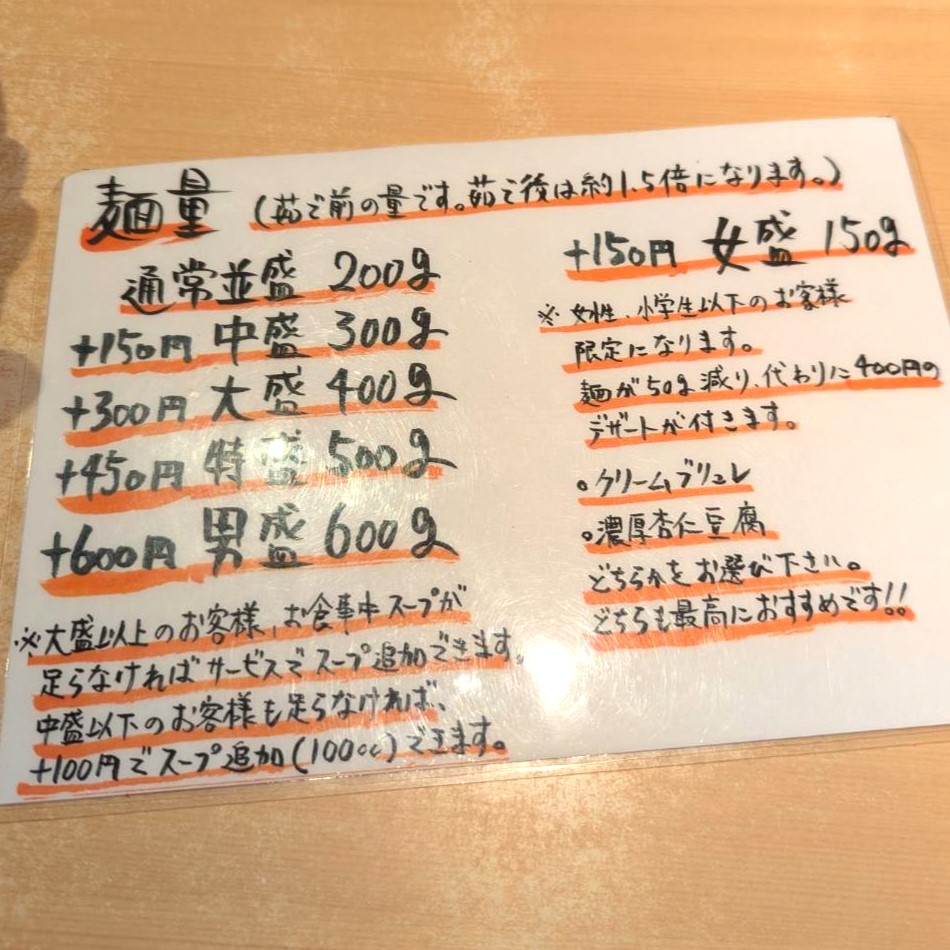 麺量 (茹で前の量です。茹で後は約1.5倍になります。)
通常並盛 200g
+150円 中盛 300g
+300円 大盛 400g
+450円 特盛 500g
+600円 男盛 600g
※大盛以上のお客様、お食事中スープが
足らなければサービスでスープ追加できます。
中盛以下のお客様も足らなければ、
+100円でスープ追加(100cc)できます。
+150円 女盛 150g
※女性、小学生以下のお客様
限定になります。
麺が50g減り、代わりに400円の
デザートが付きます。
。クリームブリュレ
。濃厚杏仁豆腐
どちらかをお選び下さい。
どちらも最高におすすめです!!